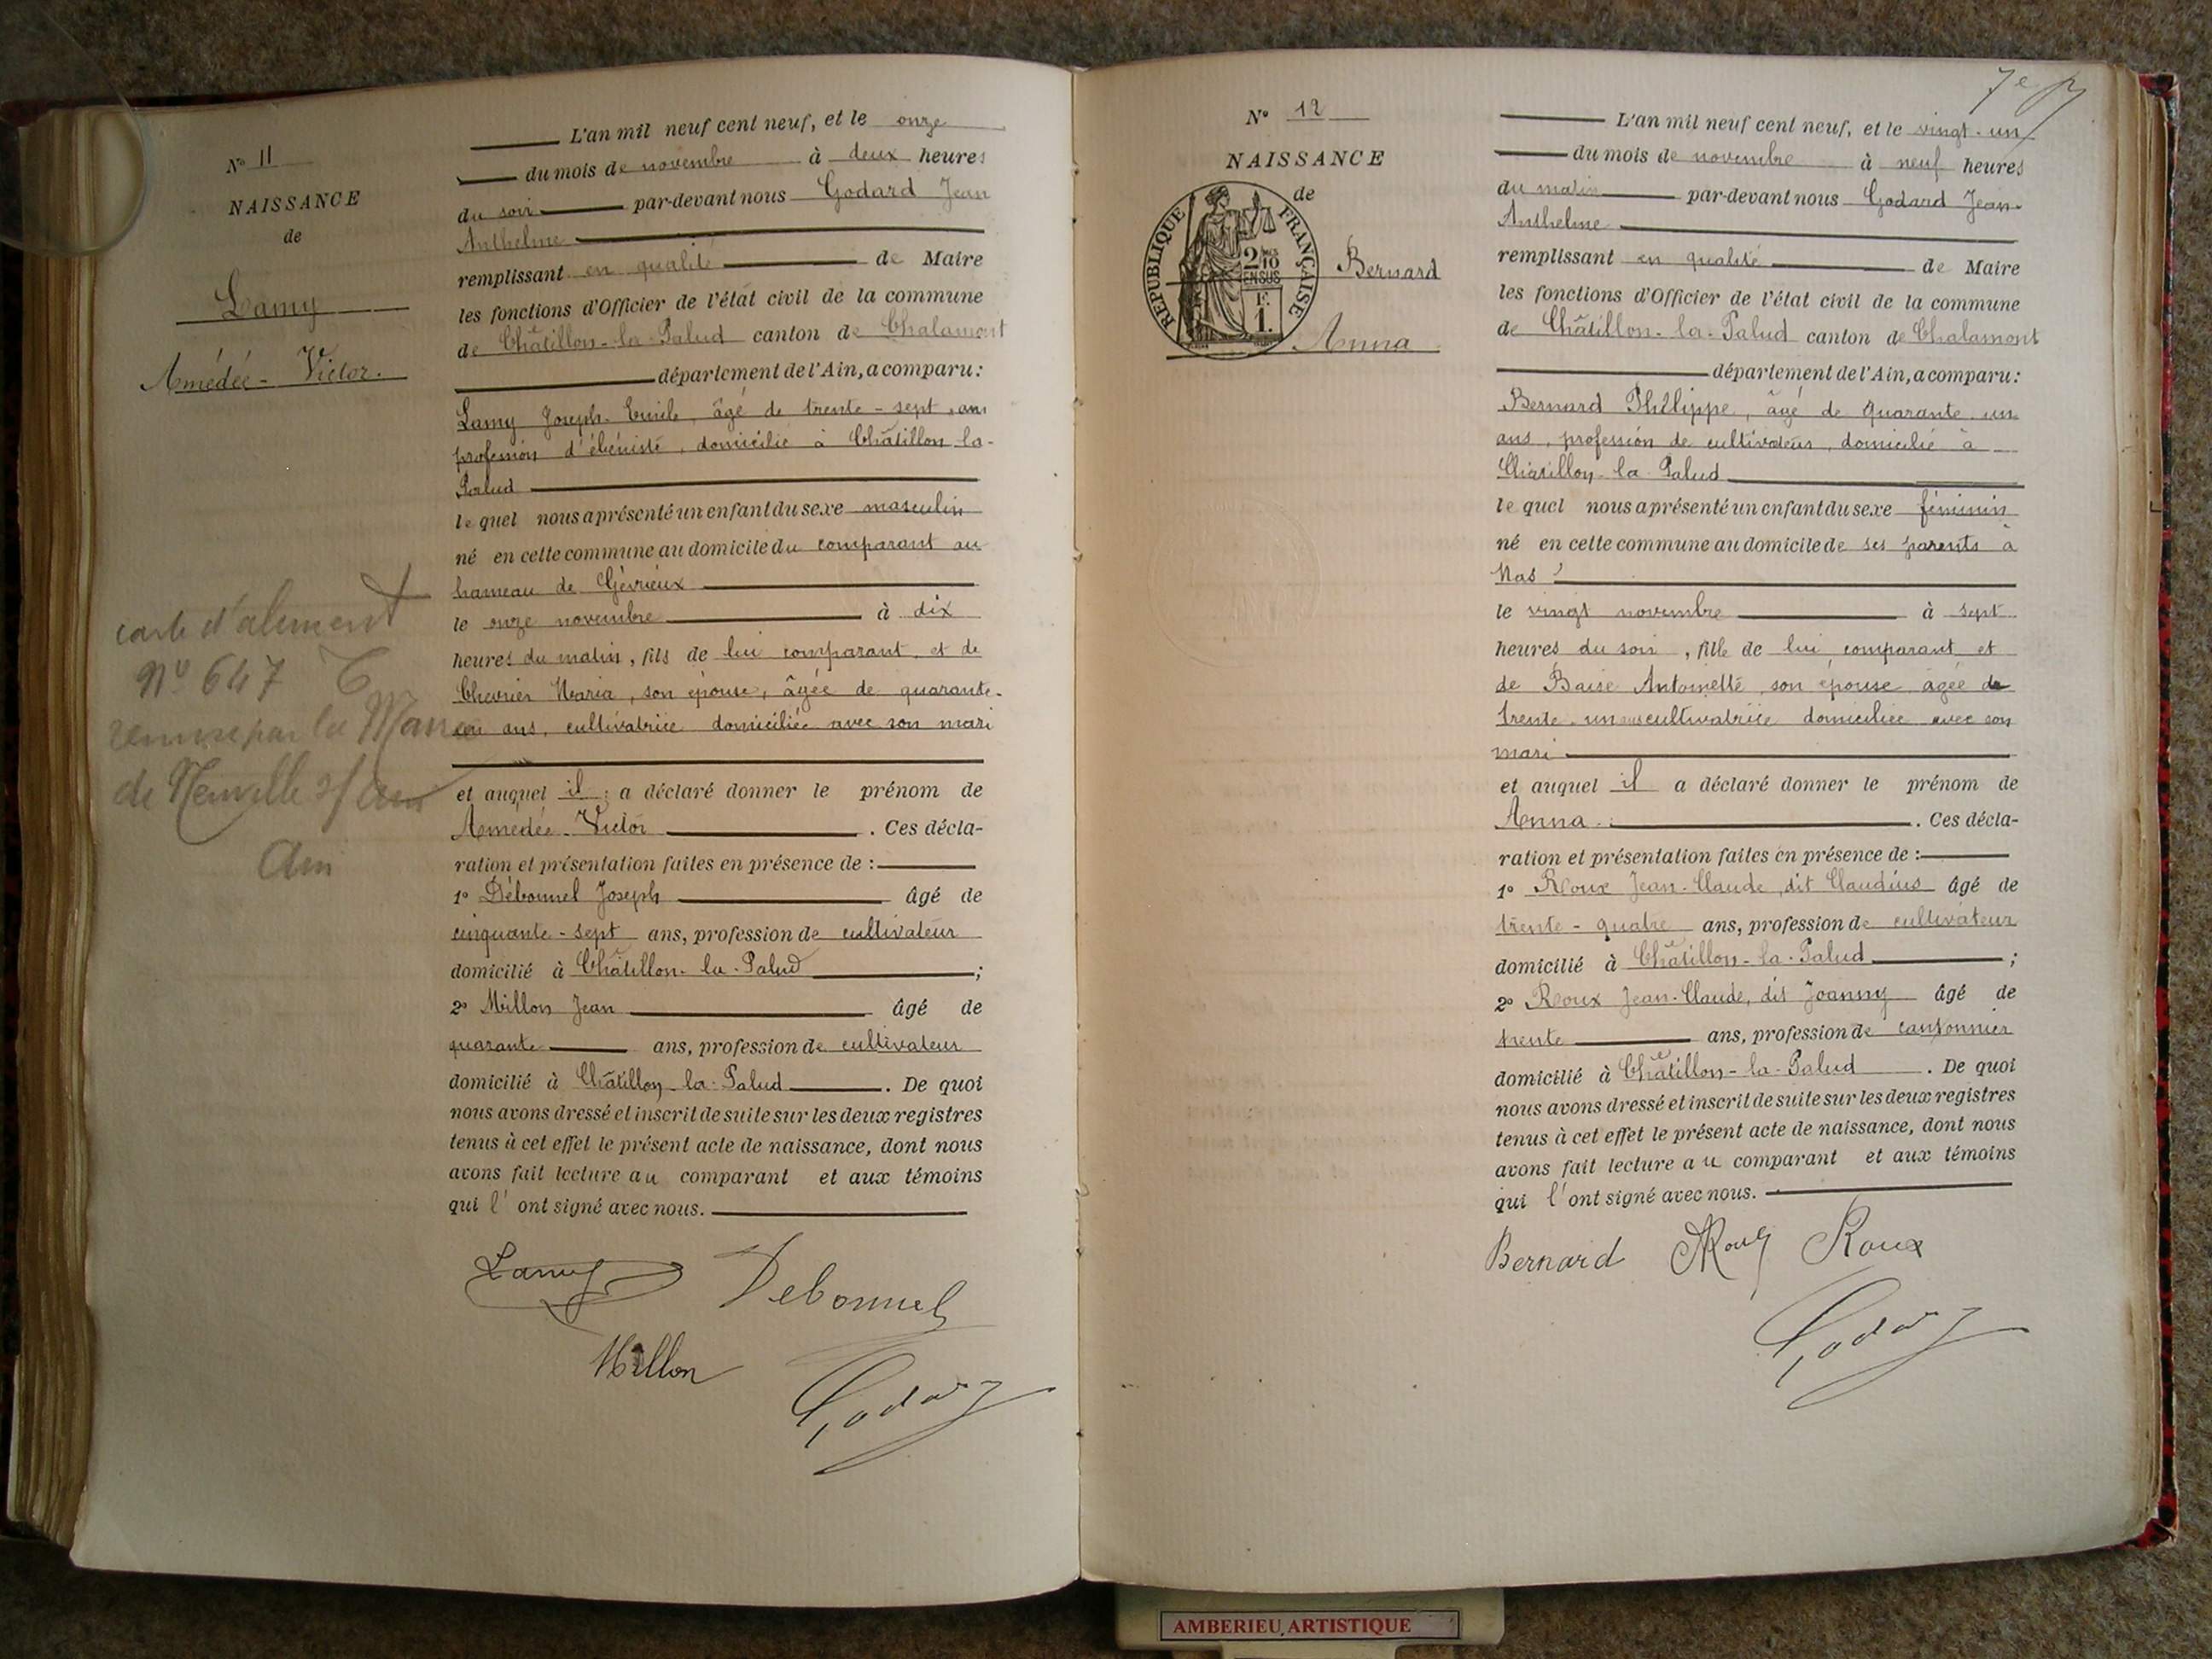 N° 11
NAISSANCE
de
Lamy
Amédée - Victor.
carte d'aliment
N° 647
remise par la Mairie
de Neuville s/ Ain
Ain
L'an mil neuf cent neuf, et le onze
du mois de novembre à deux heures
du soir par-devant nous Godard Jean
Anthelme
remplissant en qualité de Maire
les fonctions d'Officier de l'état civil de la commune
de Châtillon-la-Palud canton de Chalamont
département de l'Ain, a comparu :
Lamy Joseph-Emile, âgé de trente-sept ans
profession d'ébéniste, domicilié à Châtillon-la-
Palud
lequel nous a présenté un enfant du sexe masculin
né en cette commune au domicile du comparant au
hameau de Gévrieux
le onze novembre à dix
heures du matin, fils de lui comparant et de
Chevrier Maria, son épouse, âgée de quarante-
ans, cultivatrice domiciliée avec son mari
et auquel il a déclaré donner le prénom de
Amédée-Victor. Ces décla-
ration et présentation faites en présence de :
1° Débonnel Joseph âgé de
cinquante-sept ans, profession de cultivateur
domicilié à Châtillon-la-Palud ;
2° Millon Jean âgé de
quarante ans, profession de cultivateur
domicilié à Châtillon-la-Palud. De quoi
nous avons dressé et inscrit de suite sur les deux registres
tenus à cet effet le présent acte de naissance, dont nous
avons fait lecture au comparant et aux témoins
qui l'ont signé avec nous.
Lamy Debonnel
Millon
Godard
7e
N° 12
NAISSANCE
de
RÉPUBLIQUE FRANÇAISE
2/10
EN SUS
F.
1.
Bernard
Anna
L'an mil neuf cent neuf, et le vingt-un
du mois de novembre à neuf heures
du matin par-devant nous Godard Jean-
Anthelme
remplissant en qualité de Maire
les fonctions d'Officier de l'état civil de la commune
de Châtillon-la-Palud canton de Chalamont
département de l'Ain, a comparu :
Bernard Philippe, âgé de quarante-un
ans, profession de cultivateur, domicilié à
Châtillon-la-Palud
lequel nous a présenté un enfant du sexe féminin
né en cette commune au domicile de ses parents à
Mas
le vingt novembre à sept
heures du soir, fille de lui comparant et
de Baise Antoinette son épouse âgée de
trente-un ans cultivatrice domiciliée avec son
mari
et auquel il a déclaré donner le prénom de
Anna. Ces décla-
ration et présentation faites en présence de :
1° Roux Jean-Claude, dit Claudius âgé de
trente-quatre ans, profession de cultivateur
domicilié à Châtillon-la-Palud ;
2° Roux Jean-Claude, dit Joanny âgé de
trente ans, profession de cantonnier
domicilié à Châtillon-la-Palud. De quoi
nous avons dressé et inscrit de suite sur les deux registres
tenus à cet effet le présent acte de naissance, dont nous
avons fait lecture au comparant et aux témoins
qui l'ont signé avec nous.
Bernard Roux Roux
Godard
AMBERIEU ARTISTIQUE